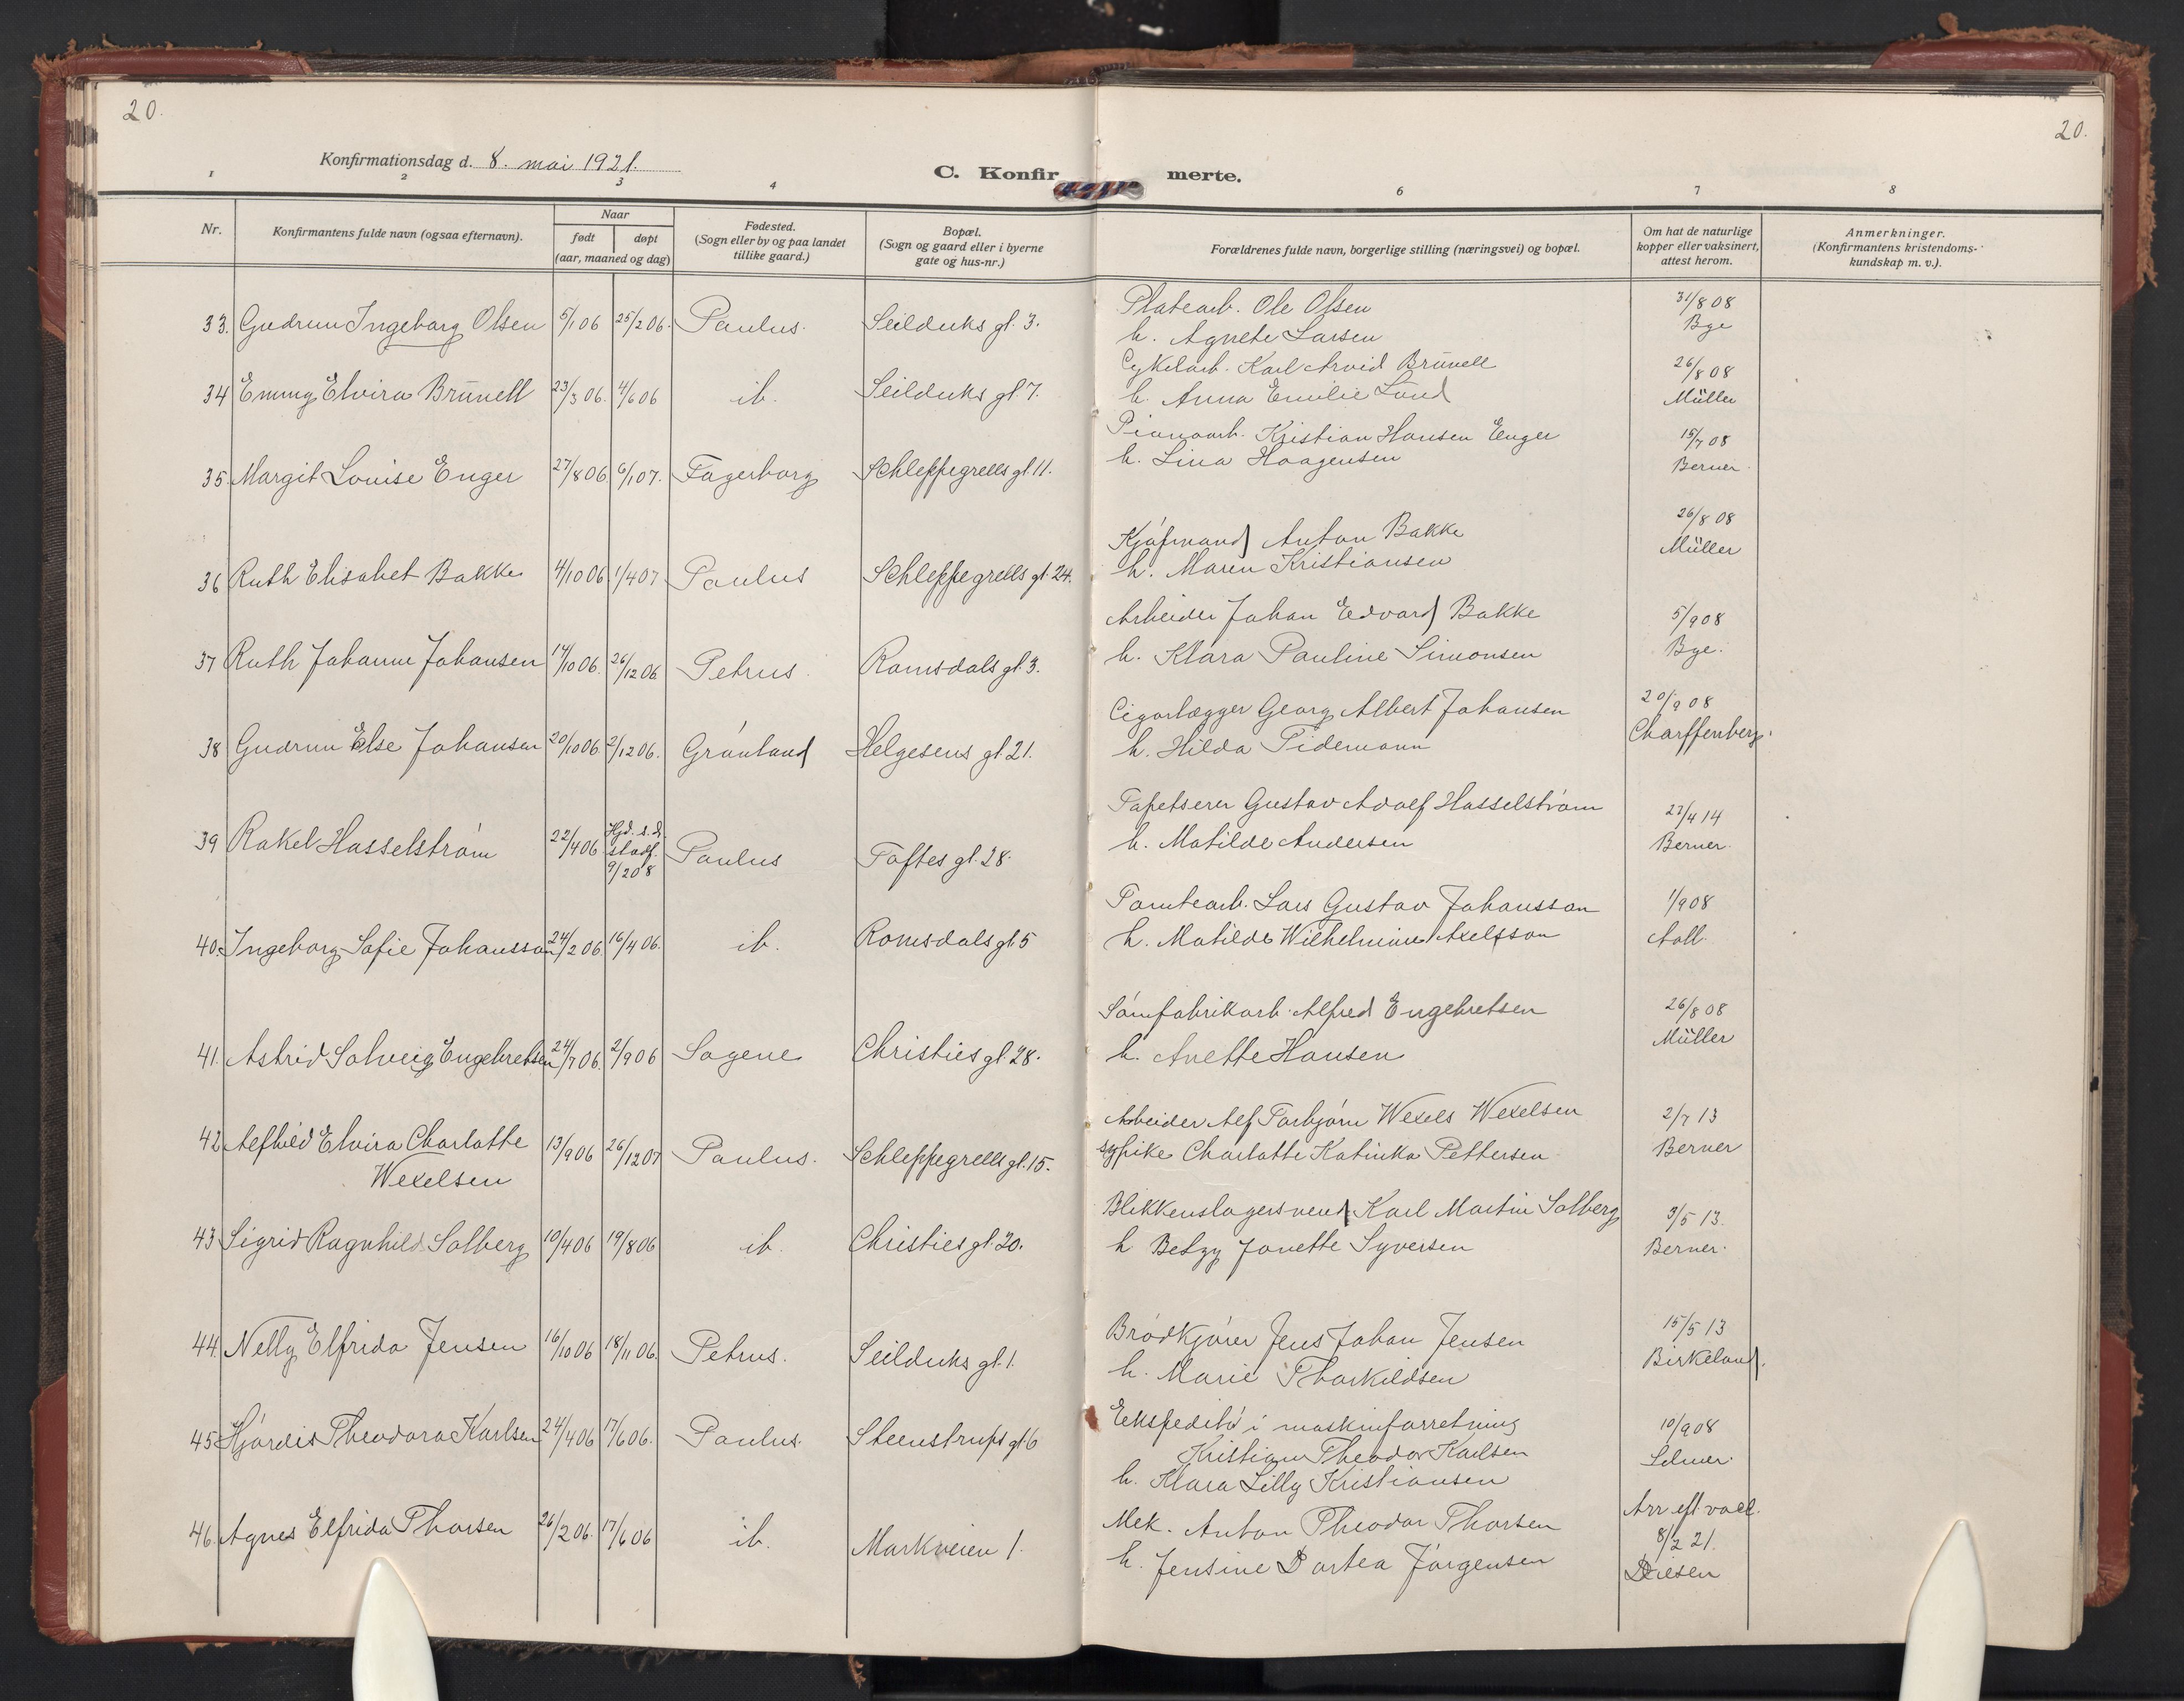 20.
20.
Konfirmationsdag d. 8. mai 1921.
C. Konfirmerte.
1 2 3 4 6 7 8
Nr.
Konfirmantens fulde navn (ogsaa efternavn).
Naar
født
døpt
(aar, maaned og dag)
Fødested.
(Sogn eller by og paa landet
tillike gaard.)
Bopæl.
(Sogn og gaard eller i byerne
gate og hus-nr.)
Forældrenes fulde navn, borgerlige stilling (næringsvei) og bopæl.
Om hat de naturlige
kopper eller vaksinert,
attest herom.
Anmerkninger.
(Konfirmantens kristendoms-
kundskap m. v.).
33. Gudrun Ingeborg Olsen 5/1 06 25/2 06. Paulus. Seilduks gt. 3.
Platearb. Ole Olsen
h. Agnete Larsen
31/8 08
Bye
34 Emmy Elvira Brünell 23/3 06. 4/6 06 ib. Seilduks gt 7.
Cykelarb. Karl Arvid Brünell
h. Anna Emilie Lund
26/8 08
Müller
35. Margit Louise Enger 27/8 06 6/1 07. Fagerborg Schleppegrells gt. 11.
Pianoarb. Kristian Hansen Enger
h. Lina Haagensen
15/7 08
Berner.
36 Ruth Elisabet Bakke 4/10 06 1/4 07 Paulus Schleppegrells gt. 24.
Kjøfmand Anton Bakke
h. Maren Kristiansen
26/8 08
Müller
37 Ruth Johanne Johansen 14/10 06. 26/12 06 Petrus. Romsdals gt. 3.
Arbeider Johan Edvard Bakke
h. Klara Pauline Simonsen
5/9 08
Bye.
38 Gudrun Else Johansen 20/10 06. 2/12 06. Grønland Helgesens gt. 21.
Cigarlægger Georg Albert Johansen
h. Hilda Tidemann
20/9 08
Charffenberg.
39 Rakel Hasselstrøm 22/4 06 Hjd. s.d. stadf. 9/2 08 Paulus Toftes gt. 28.
Tapetserer Gustav Adolf Hasselstrøm
h. Matilde Andersen
27/4 14
Berner.
40. Ingeborg Sofie Johansson 24/2 06. 16/4 06. ib. Romsdals gt. 5
Tomtearb. Lars Gustav Johansson
h. Matilde Wilhelmine Axelsson
1/9 08
Aall.
41. Astrid Solveig Engebretsen 24/7 06. 2/9 06 Sagene Christies gt. 28.
Sømfabrikarb. Alfred Engebretsen
h. Anette Hansen
26/8 08
Müller
42 Alfhild Elvira Charlotte
Wexelsen
13/9 06 26/12 07 Paulus. Schleppegrells gt. 15.
Arbeider Alf Torbjørn Wexels Wexelsen
sypike Charlotte Katinka Pettersen
2/7 13
Berner
43 Sigrid Ragnhild Solberg 10/4 06 19/8 06 ib. Christies gt. 20.
Blikkenslagersvend Karl Martin Solberg
h Betzy Janette Syversen
3/5 13.
Berner.
44. Nelly Elfrida Jensen 16/10 06 18/11 06. Petrus. Seilduks gt. 1.
Brødkjører Jens Johan Jensen
h. Marie Thorkildsen
15/5 13
Birkeland.
45 Hjørdis Theodora Karlsen 24/4 06 17/6 06. Paulus. Steenstrups gt 6
Ekspeditør i maskinforretning
Kristian Theodor Karlsen
h. Klara Lilly Kristiansen
10/9 08
Selmer.
46. Agnes Elfrida Thorsen 26/2 06. 17/6 06 ib. Markveien 1.
Mek. Anton Theodor Thorsen
h. Jensine Dortea Jørgensen
Arr eft vacc.
8/2 21.
Diesen